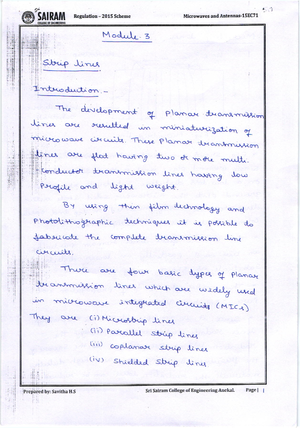 SAIRAM
COLLEGE OF ENGINEERING
Regulation - 2015 Scheme
Microwaves and Antennas-15EC71
Module 3
Strip lines
Introduction :-
The development of planar transmission
lines are resulted in miniaturization of
microwave circuits. These Planar transmission
lines are flat having two or more multi
conductor transmission lines having low
Profile and light weight.
By using thin film technology and
Photolithographic techniques it is possible to
fabricate the complete transmission line
circuits.
There are four basic types of planar
transmission lines which are widely used
in microwave integrated circuits (MICs)
They are (i) Microstrip lines
(ii) Parallel strip lines
(iii) coplanar strip lines
(iv) Shielded Strip lines
Prepared by: Savitha H.S
Sri Sairam College of Engineering Anekal.
Page |